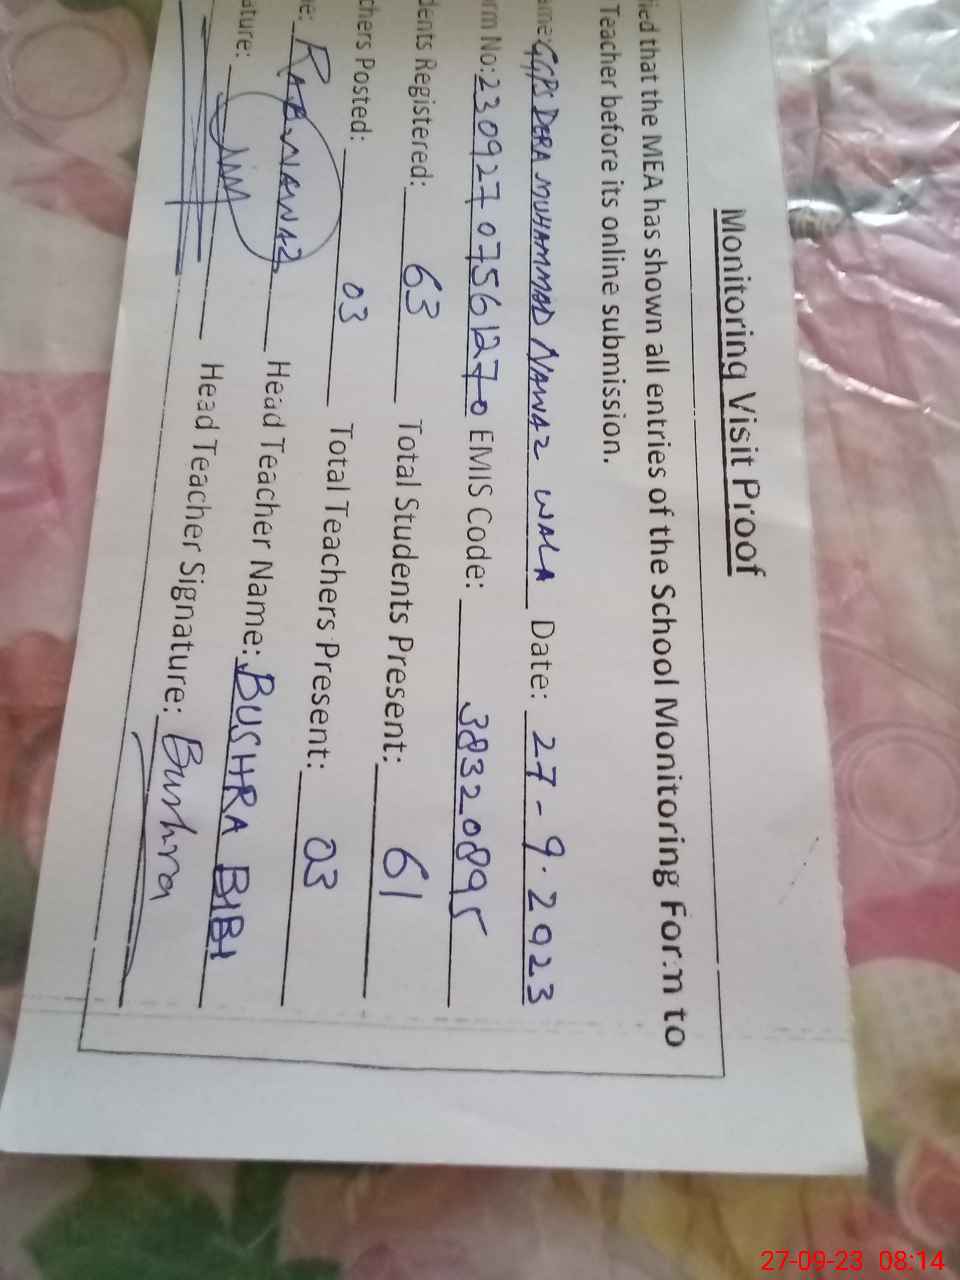 Monitoring Visit Proof
ied that the MEA has shown all entries of the School Monitoring Form to
Teacher before its online submission.
ame: GGPS DERA MUHAMMAD NAWAZ WALA Date: 27-9-2023
rm No: 23092707561270 EMIS Code: 38320895
dents Registered: 63 Total Students Present: 61
chers Posted: 03 Total Teachers Present: 03
e: RAB NAWAZ Head Teacher Name: BUSHRA BIBI
ature: Head Teacher Signature: Bushra
27-09-23 08:14